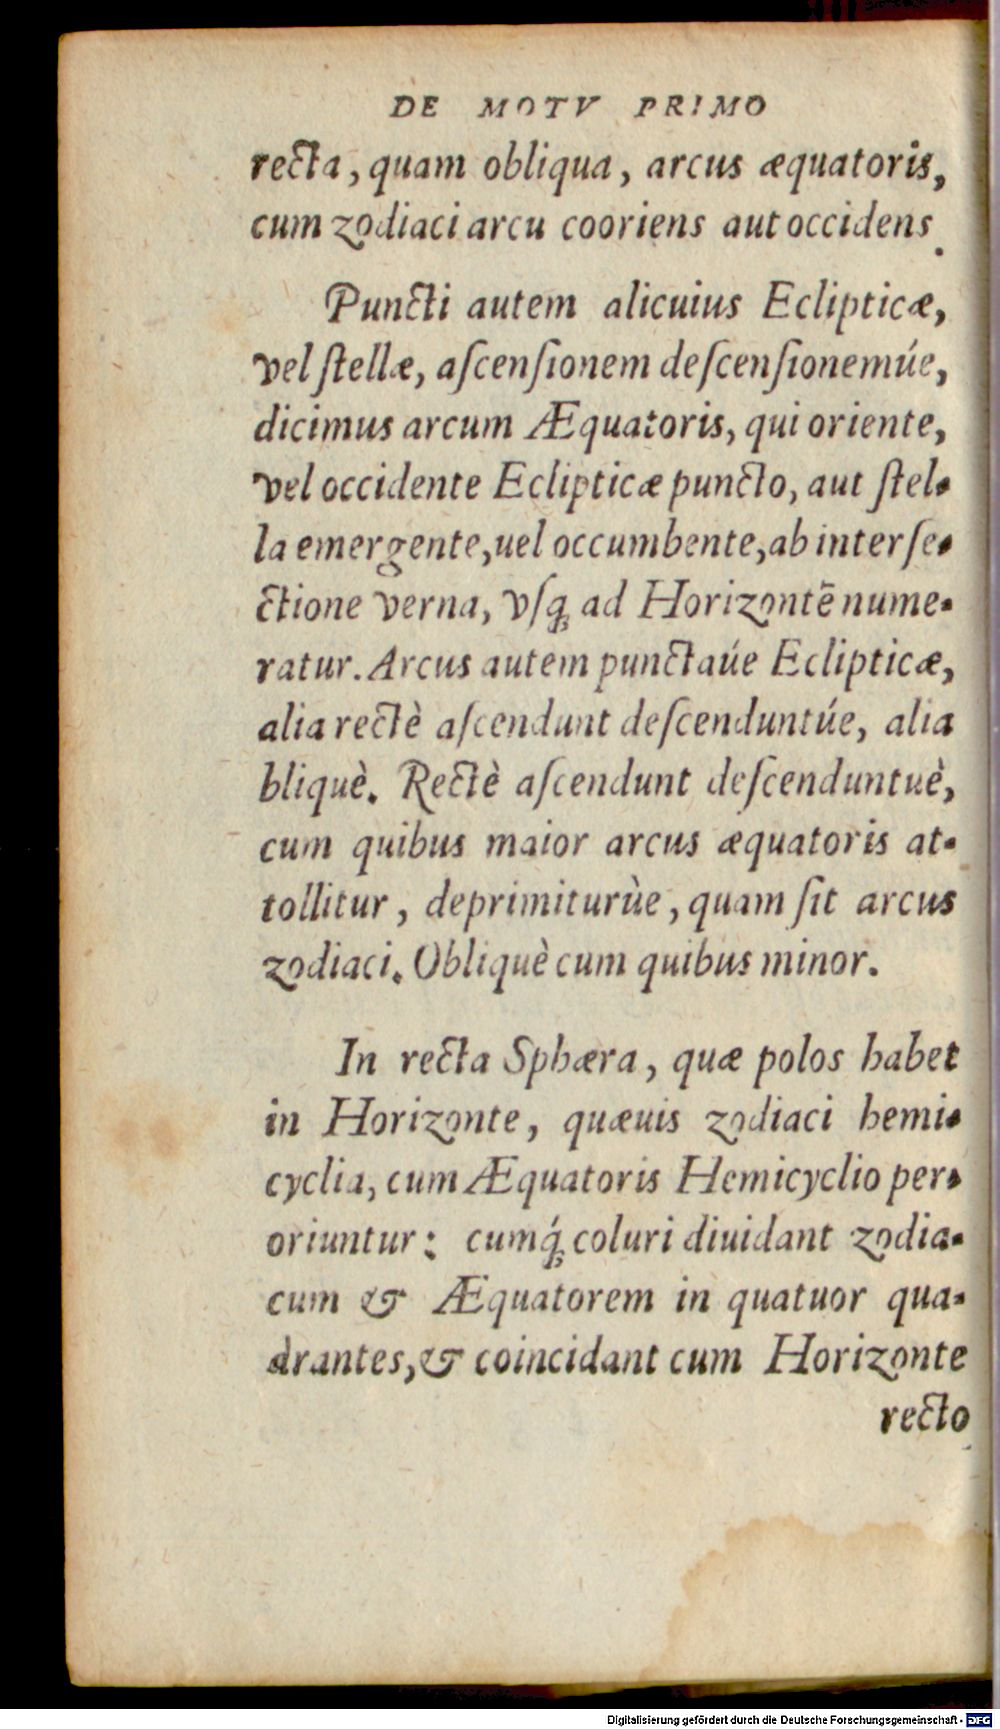 DE MOTV PRIMO
recta, quam obliqua, arcus æquatoris,
cum zodiaci arcu cooriens aut occidens.
Puncti autem alicuius Eclipticæ,
vel ſtellæ, aſcenſionem deſcenſionemúe,
dicimus arcum Æquatoris, qui oriente,
vel occidente Eclipticæ puncto, aut ſtel-
la emergente, uel occumbente, ab interſe-
ctione verna, vſq́ꝫ ad Horizontē nume-
ratur. Arcus autem punctaúe Eclipticæ,
alia rectè aſcendunt deſcenduntúe, alia
bliquè. Rectè aſcendunt deſcenduntuè,
cum quibus maior arcus æquatoris at-
tollitur, deprimiturùe, quam ſit arcus
zodiaci. Obliquè cum quibus minor.
In recta Sphæra, quæ polos habet
in Horizonte, quæuis zodiaci hemi-
cyclia, cum Æquatoris Hemicyclio per-
oriuntur: cumq́ꝫ coluri diuidant zodia-
cum & Æquatorem in quatuor qua-
drantes, & coincidant cum Horizonte
recto
Digitalisierung gefördert durch die Deutsche Forschungsgemeinschaft - DFG